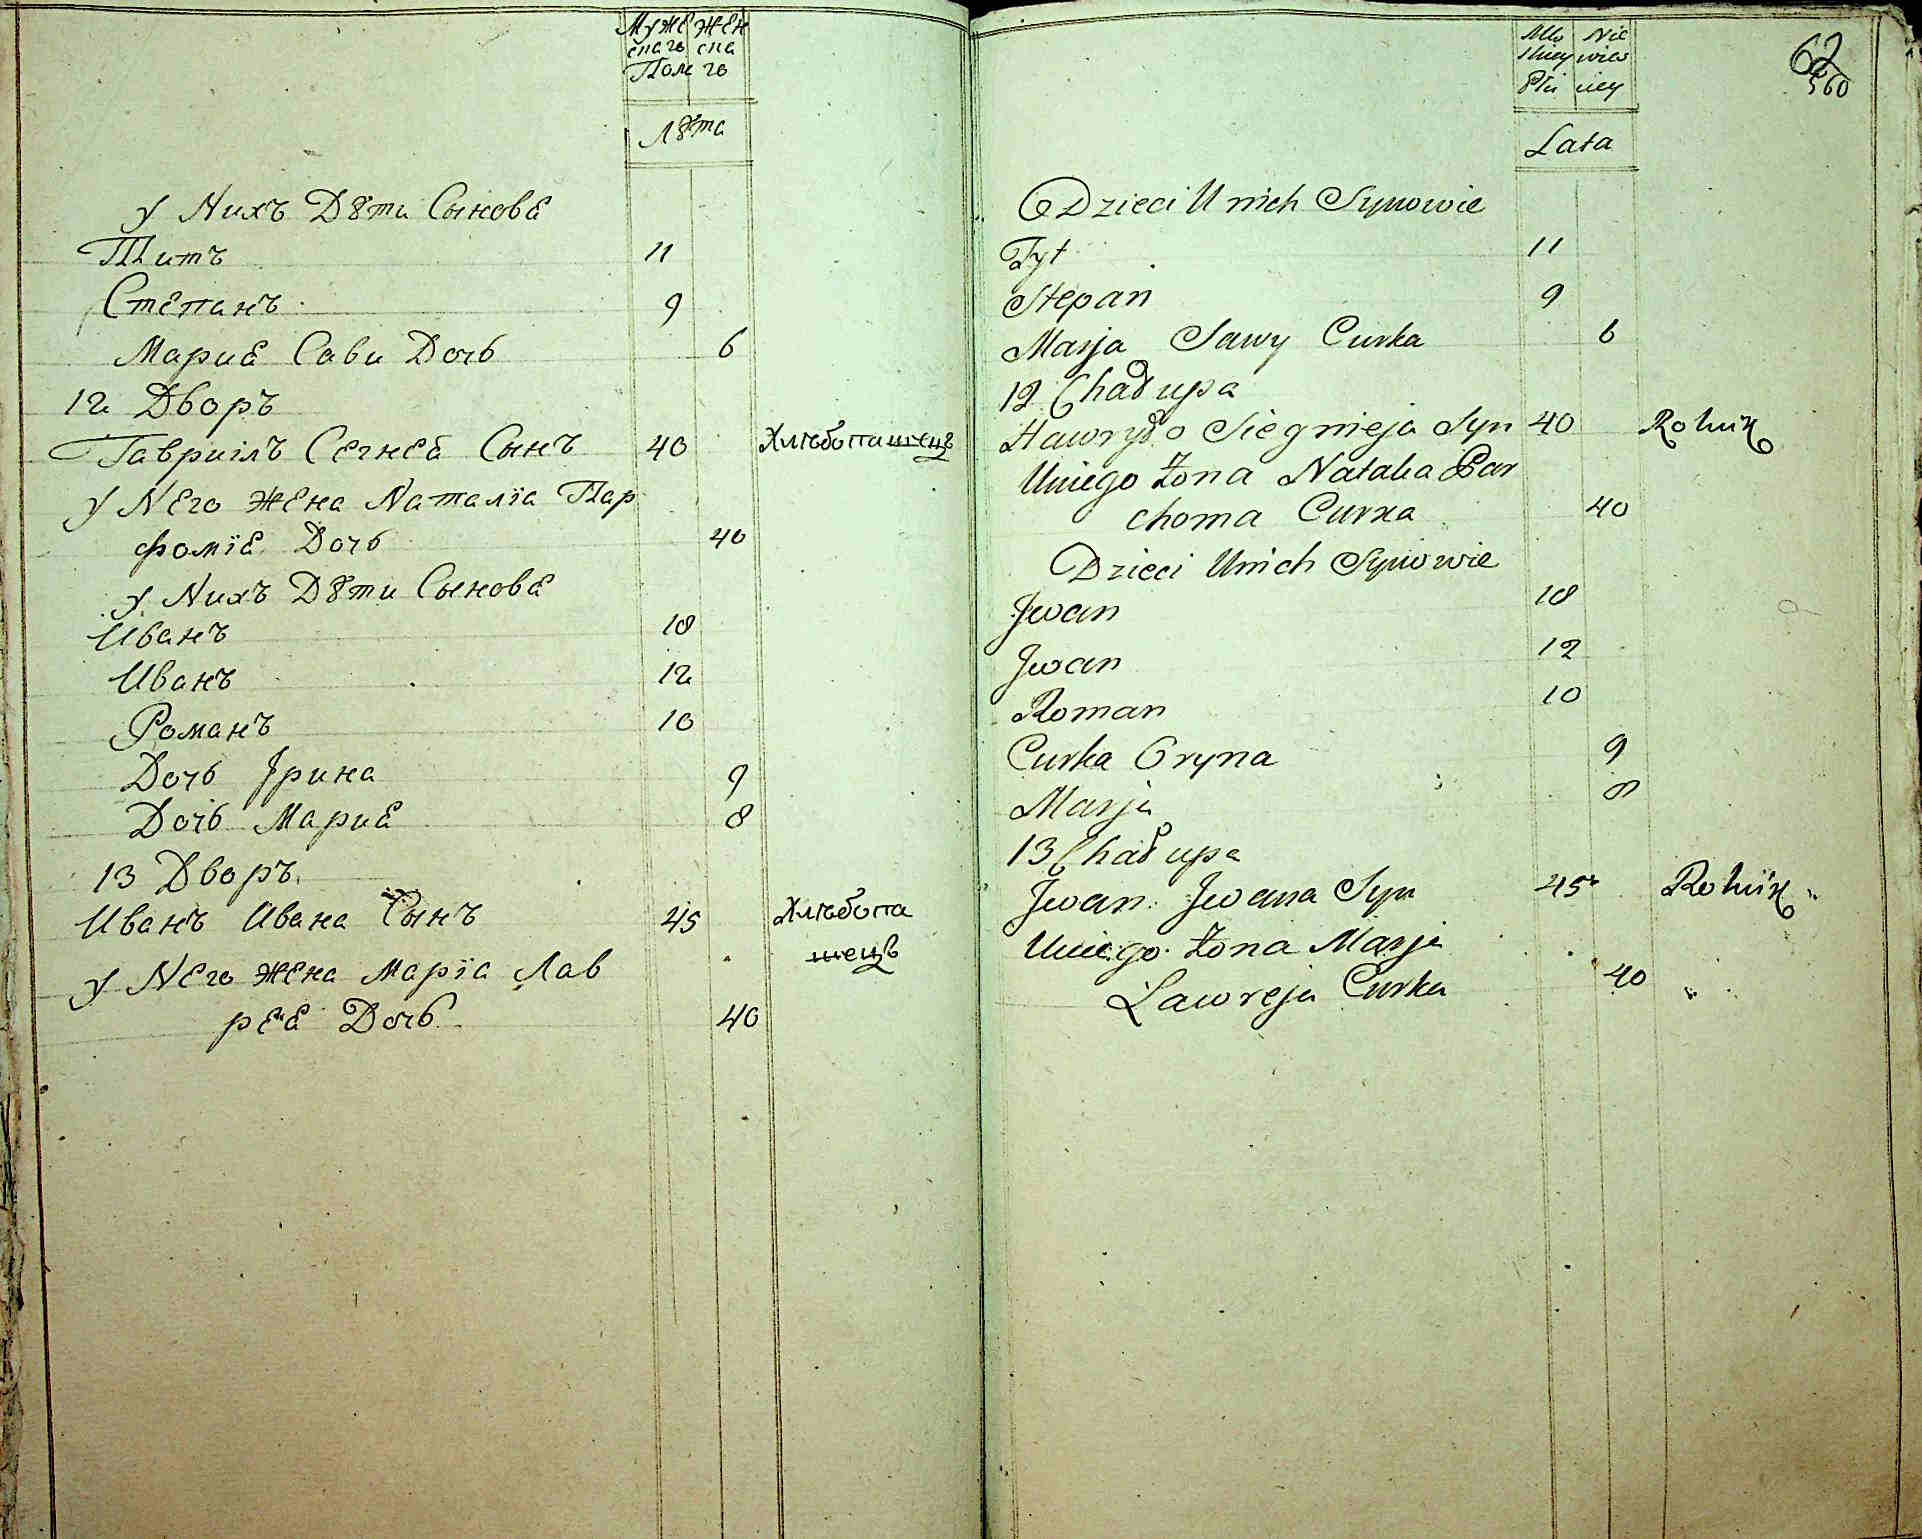 Муже Жен
скаго ска
Полу го
Лѣта
у Nихъ Дѣти Сынове
Титъ 11
Степанъ 9
Марие Сави Дочь 6
12 Дворъ
Гавриілъ Сегнеа Сынъ 40 Хлѣбопашецъ
у Nего жена Nаталїа Пар
фомїе Дочь 40
у Nихъ Дѣти Сынове
Иванъ 18
Иванъ 12
Романъ 10
Дочь Ірина 9
Дочь Марие 8
13 Дворъ
Иванъ Ивана Сынъ 45 Хлѣбопа
шецъ
у Nего жена Марїа Лав
рее Дочь 40
62
560
Męs Nie
skiey wieś
Płci ciey
Lata
Dzieci U nich Synowie
Tyt 11
Stepan 9
Marja Sawy Curka 6
12 Chałupa
Hawryło Siegnieja Syn 40 Rolnik
Uniego Zona Natalia Par
choma Curka 40
Dzieci Unich Synowie
Jwan 18
Jwan 12
Roman 10
Curka Oryna 9
Marja 8
13 Chałupa
Jwan Jwana Syn 45 Rolnik
Uniego Zona Marja
Lawreja Curka 40